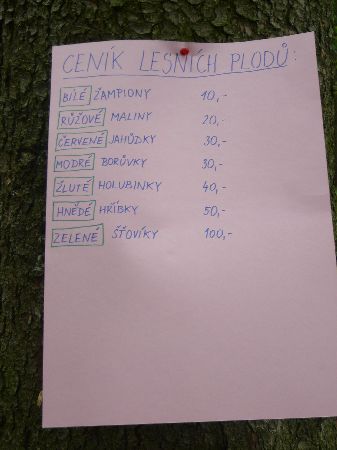 CENÍK LESNÍCH PLODŮ:
BÍLÉ ŽAMPIONY 10,-
RŮŽOVÉ MALINY 20,-
ČERVENÉ JAHŮDKY 30,-
MODRÉ BORŮVKY 30,-
ŽLUTÉ HOLUBINKY 40,-
HNĚDÉ HŘÍBKY 50,-
ZELENÉ ŠŤOVÍKY 100,-